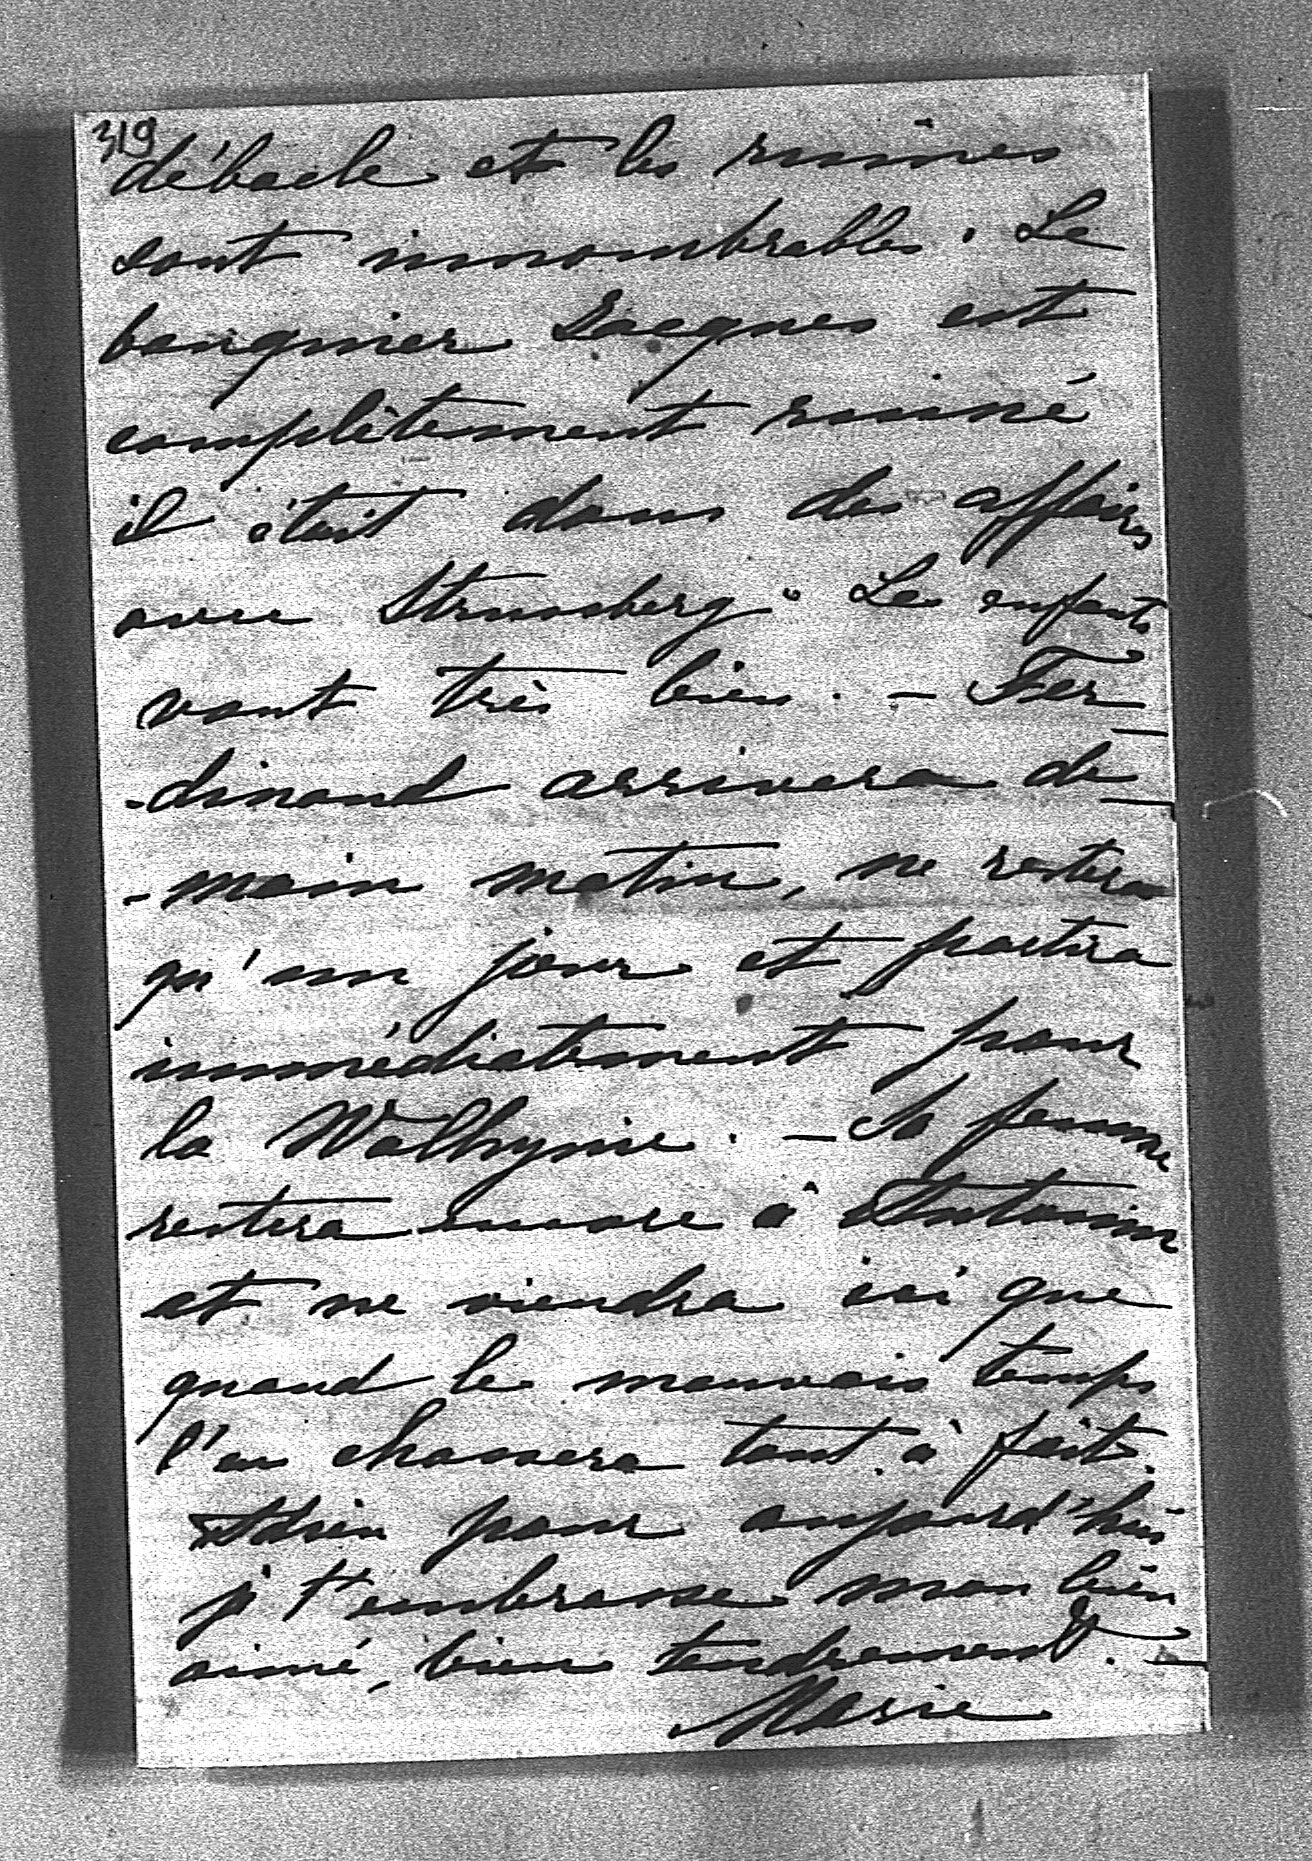 319
débacle et les ruines
sont innombrables. Le
banquier Jacques est
complètement ruiné
il était dans des affaires
avec Strousberg. Les enfants
vont très bien. — Fer-
-dinand arrivera de-
-main matin, ne restera
qu'un jour et partira
immédiatement pour
la Wolhynie. — Sa femme
restera encore à Antonin
et ne viendra ici que
quand le mauvais temps
l'en chassera tout à fait.
Adieu pour aujourd'hui
je t'embrasse mon bien
aimé, bien tendrement. —
Marie